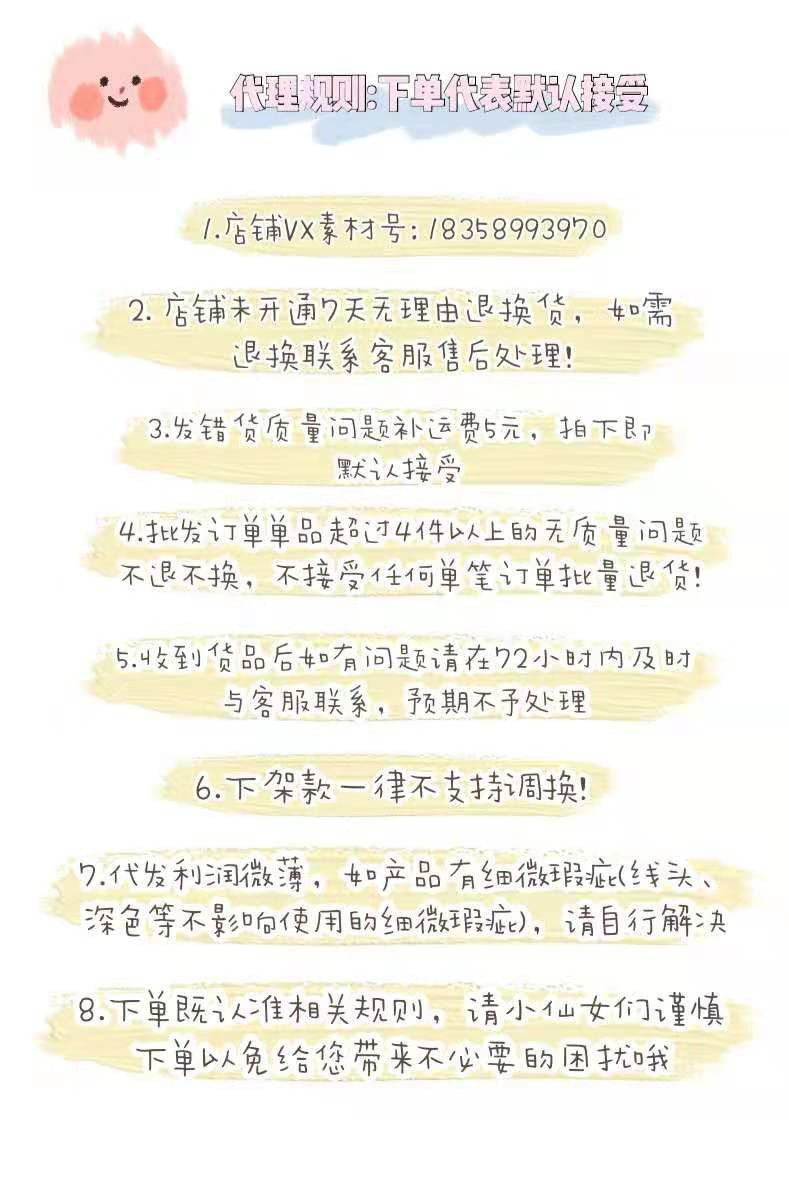 代理规则:下单代表默认接受
1.店铺VX素材号:18358993970
2.店铺未开通7天无理由退换货，如需
退换联系客服售后处理!
3.发错货质量问题补运费5元，拍下即
默认接受
4.批发订单单品超过4件以上的无质量问题
不退不换，不接受任何单笔订单批量退货!
5.收到货品后如有问题请在72小时内及时
与客服联系，预期不予处理
6.下架款一律不支持调换!
7.代发利润微薄，如产品有细微瑕疵(线头、
深色等不影响使用的细微瑕疵)，请自行解决
8.下单既认准相关规则，请小仙女们谨慎
下单以免给您带来不必要的困扰哦